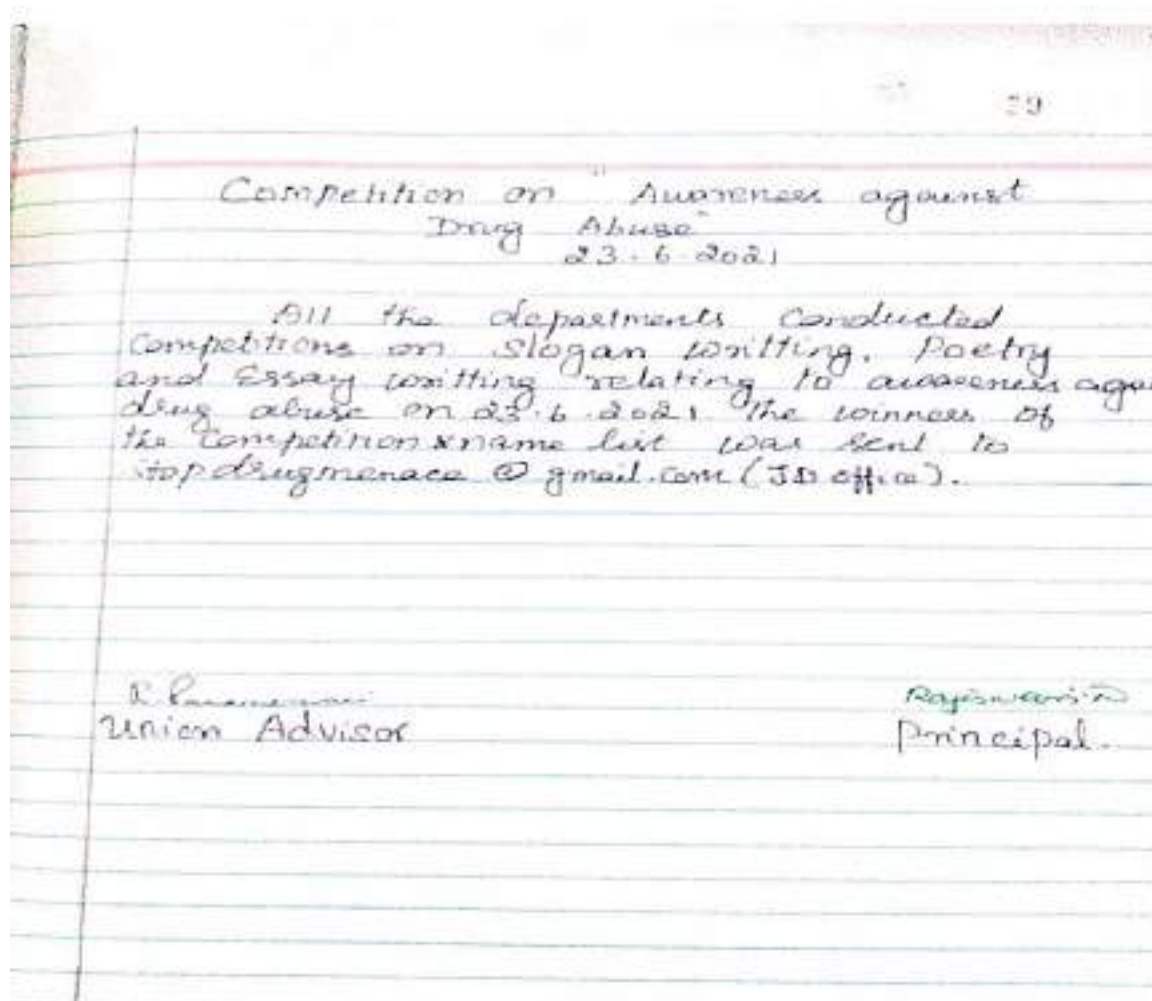 Competition on "Awareness against
Drug Abuse"
23.6.2021
All the departments conducted
Competitions on Slogan writting, Poetry
and Essay writting relating to awareness agai
drug abuse on 23.6.2021 The winners of
the Competition & name list was sent to
stopdrugmenace @ gmail.com (JD office).
Union Advisor
Rajeswari
Principal.